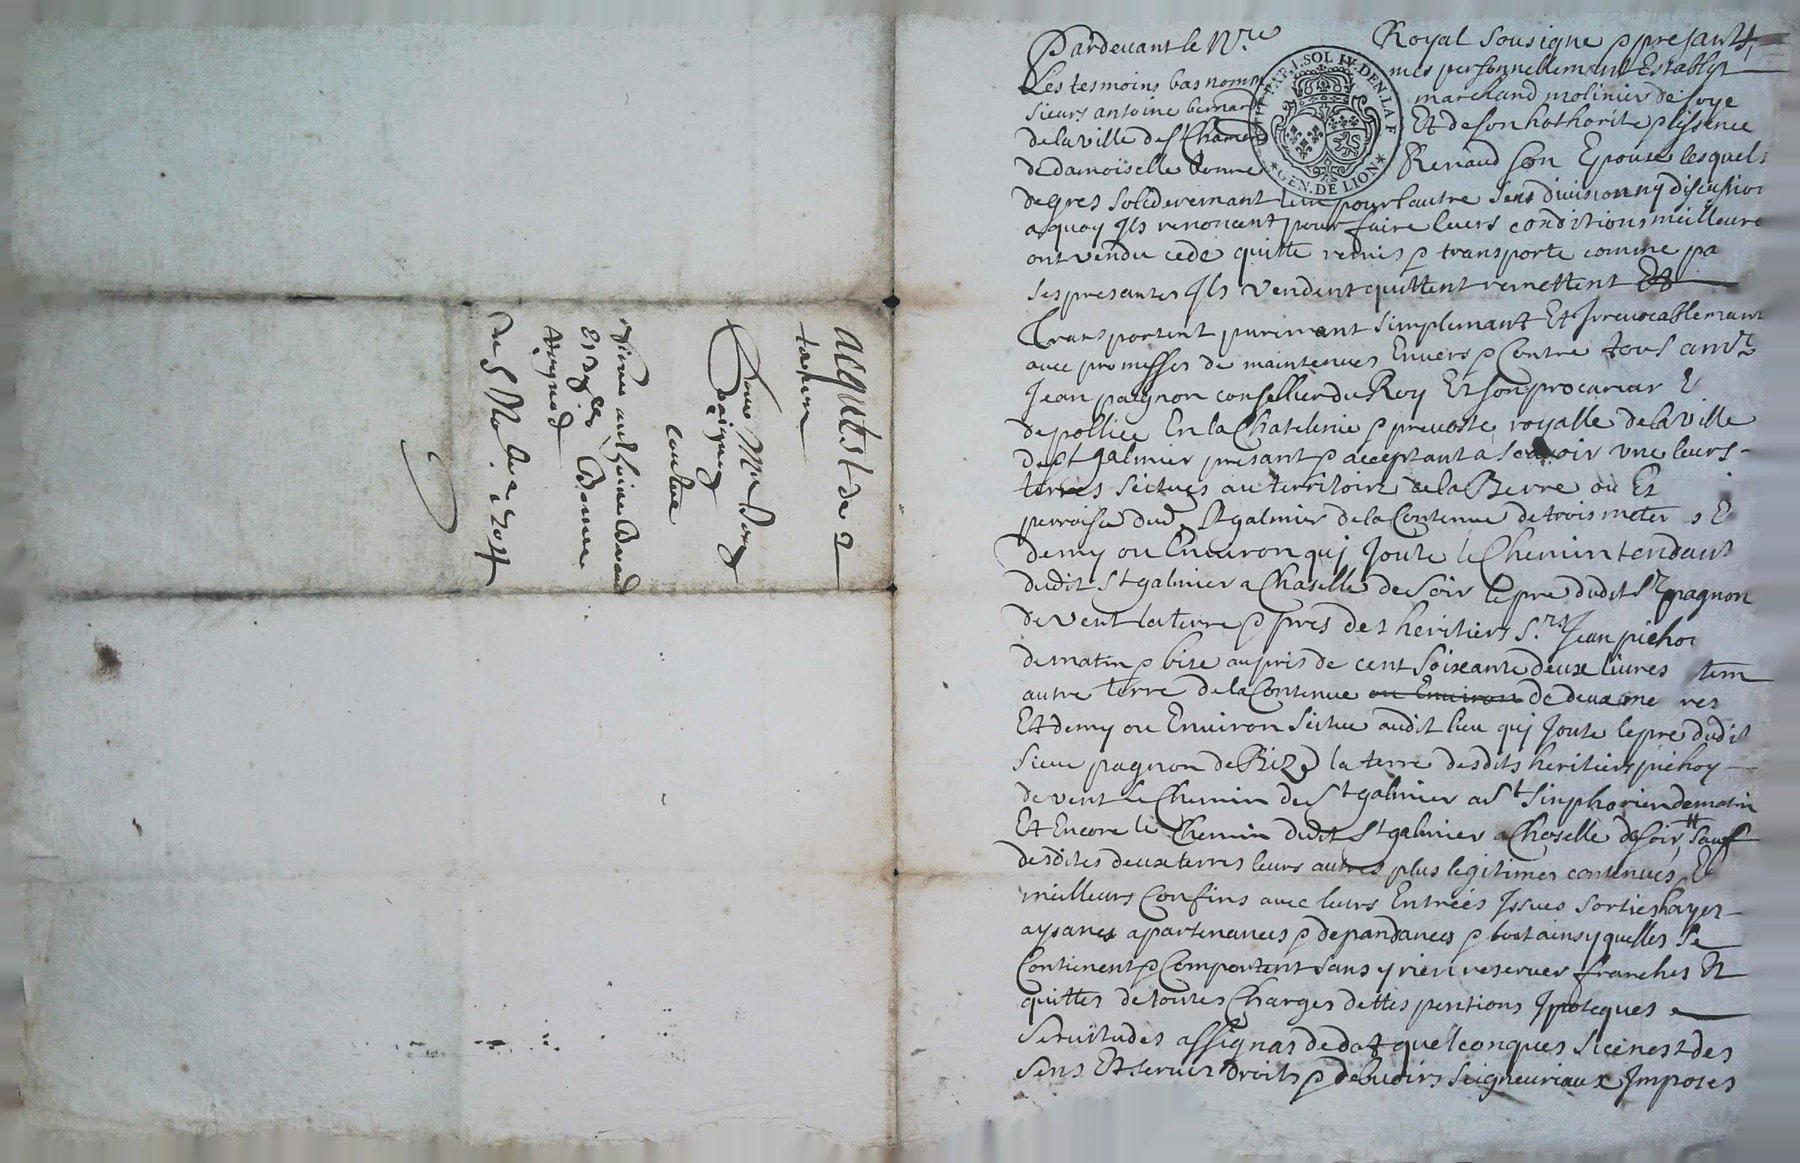 acquist de 2
terres
Pour Mr Jean
paignon
contre
Sieur anthoine Bernard
Et Dlle Bonne
Reynaud
du 5 No.bre 1704
Pardevant le Nre Royal sousigne & presants
Les tesmoins bas nommes personnellement Establys
sieurs antoine bernard marchand molinier de soye
de la ville de St Chamond Et de son hothorite & issence
de damoiselle bonne Renaud son Epouse lesquels
de gres solideremant l'un pour l'autre sens division ny discusion
a quoy Ils renoncent pour faire leurs conditions meilleure
ont vendu cede quitte remis & transporte comme pa
ses presantes Ils vendent quittent remettent Et
Transportent purement simplemant Et Irrevocablemant
avec promesses de maintenues Envers & Contre tous a mre
Jean pagnon conseillier du Roy Et son procureur E
de pollice En la Chatelenie & prevoste royalle de la ville
de St galmier presant & acceptant a scavoir une leurs
terres scitues au territoire de la Berre ou Et
perroisse dud. St galmier de la Contenue de trois meter s E
demy ou Environ qui Joute le Chemin tendant
dudit St galmier a Chaselle de soir le pre dudit Sr pagnon
de vent la terre & pres des heritiers Srs Jean pichon
de matin & bise au pris de cent soixante deux livres Item
autre terre de la Contenue ou Environ de deux me res
Et demy ou Environ scitue audit lieu qui Joute le pre dudit
sieur pagnon de Bize la terre desdits heritiers pichon
de vent le Chemin de St galmier a St sinphorien de matin
Et Encore le Chemin dudit St galmier a Choselle de soir sauf
desdites deux terres leurs autres plus legitimes contenues E
meilleurs Confins avec leurs Entrees Issues sorties hayes
aysances apartenances & depandances & tout ainsy quelles se
Contienent & Comportent sans y rien reserver franches Et
quittes de toutes Charges dettes pentions Ipoteques e
servitudes assignas de dot quelconques si ce nest des
sens Et servis droits & debvoirs seigneuriaux Imposes
GEN. DE LION